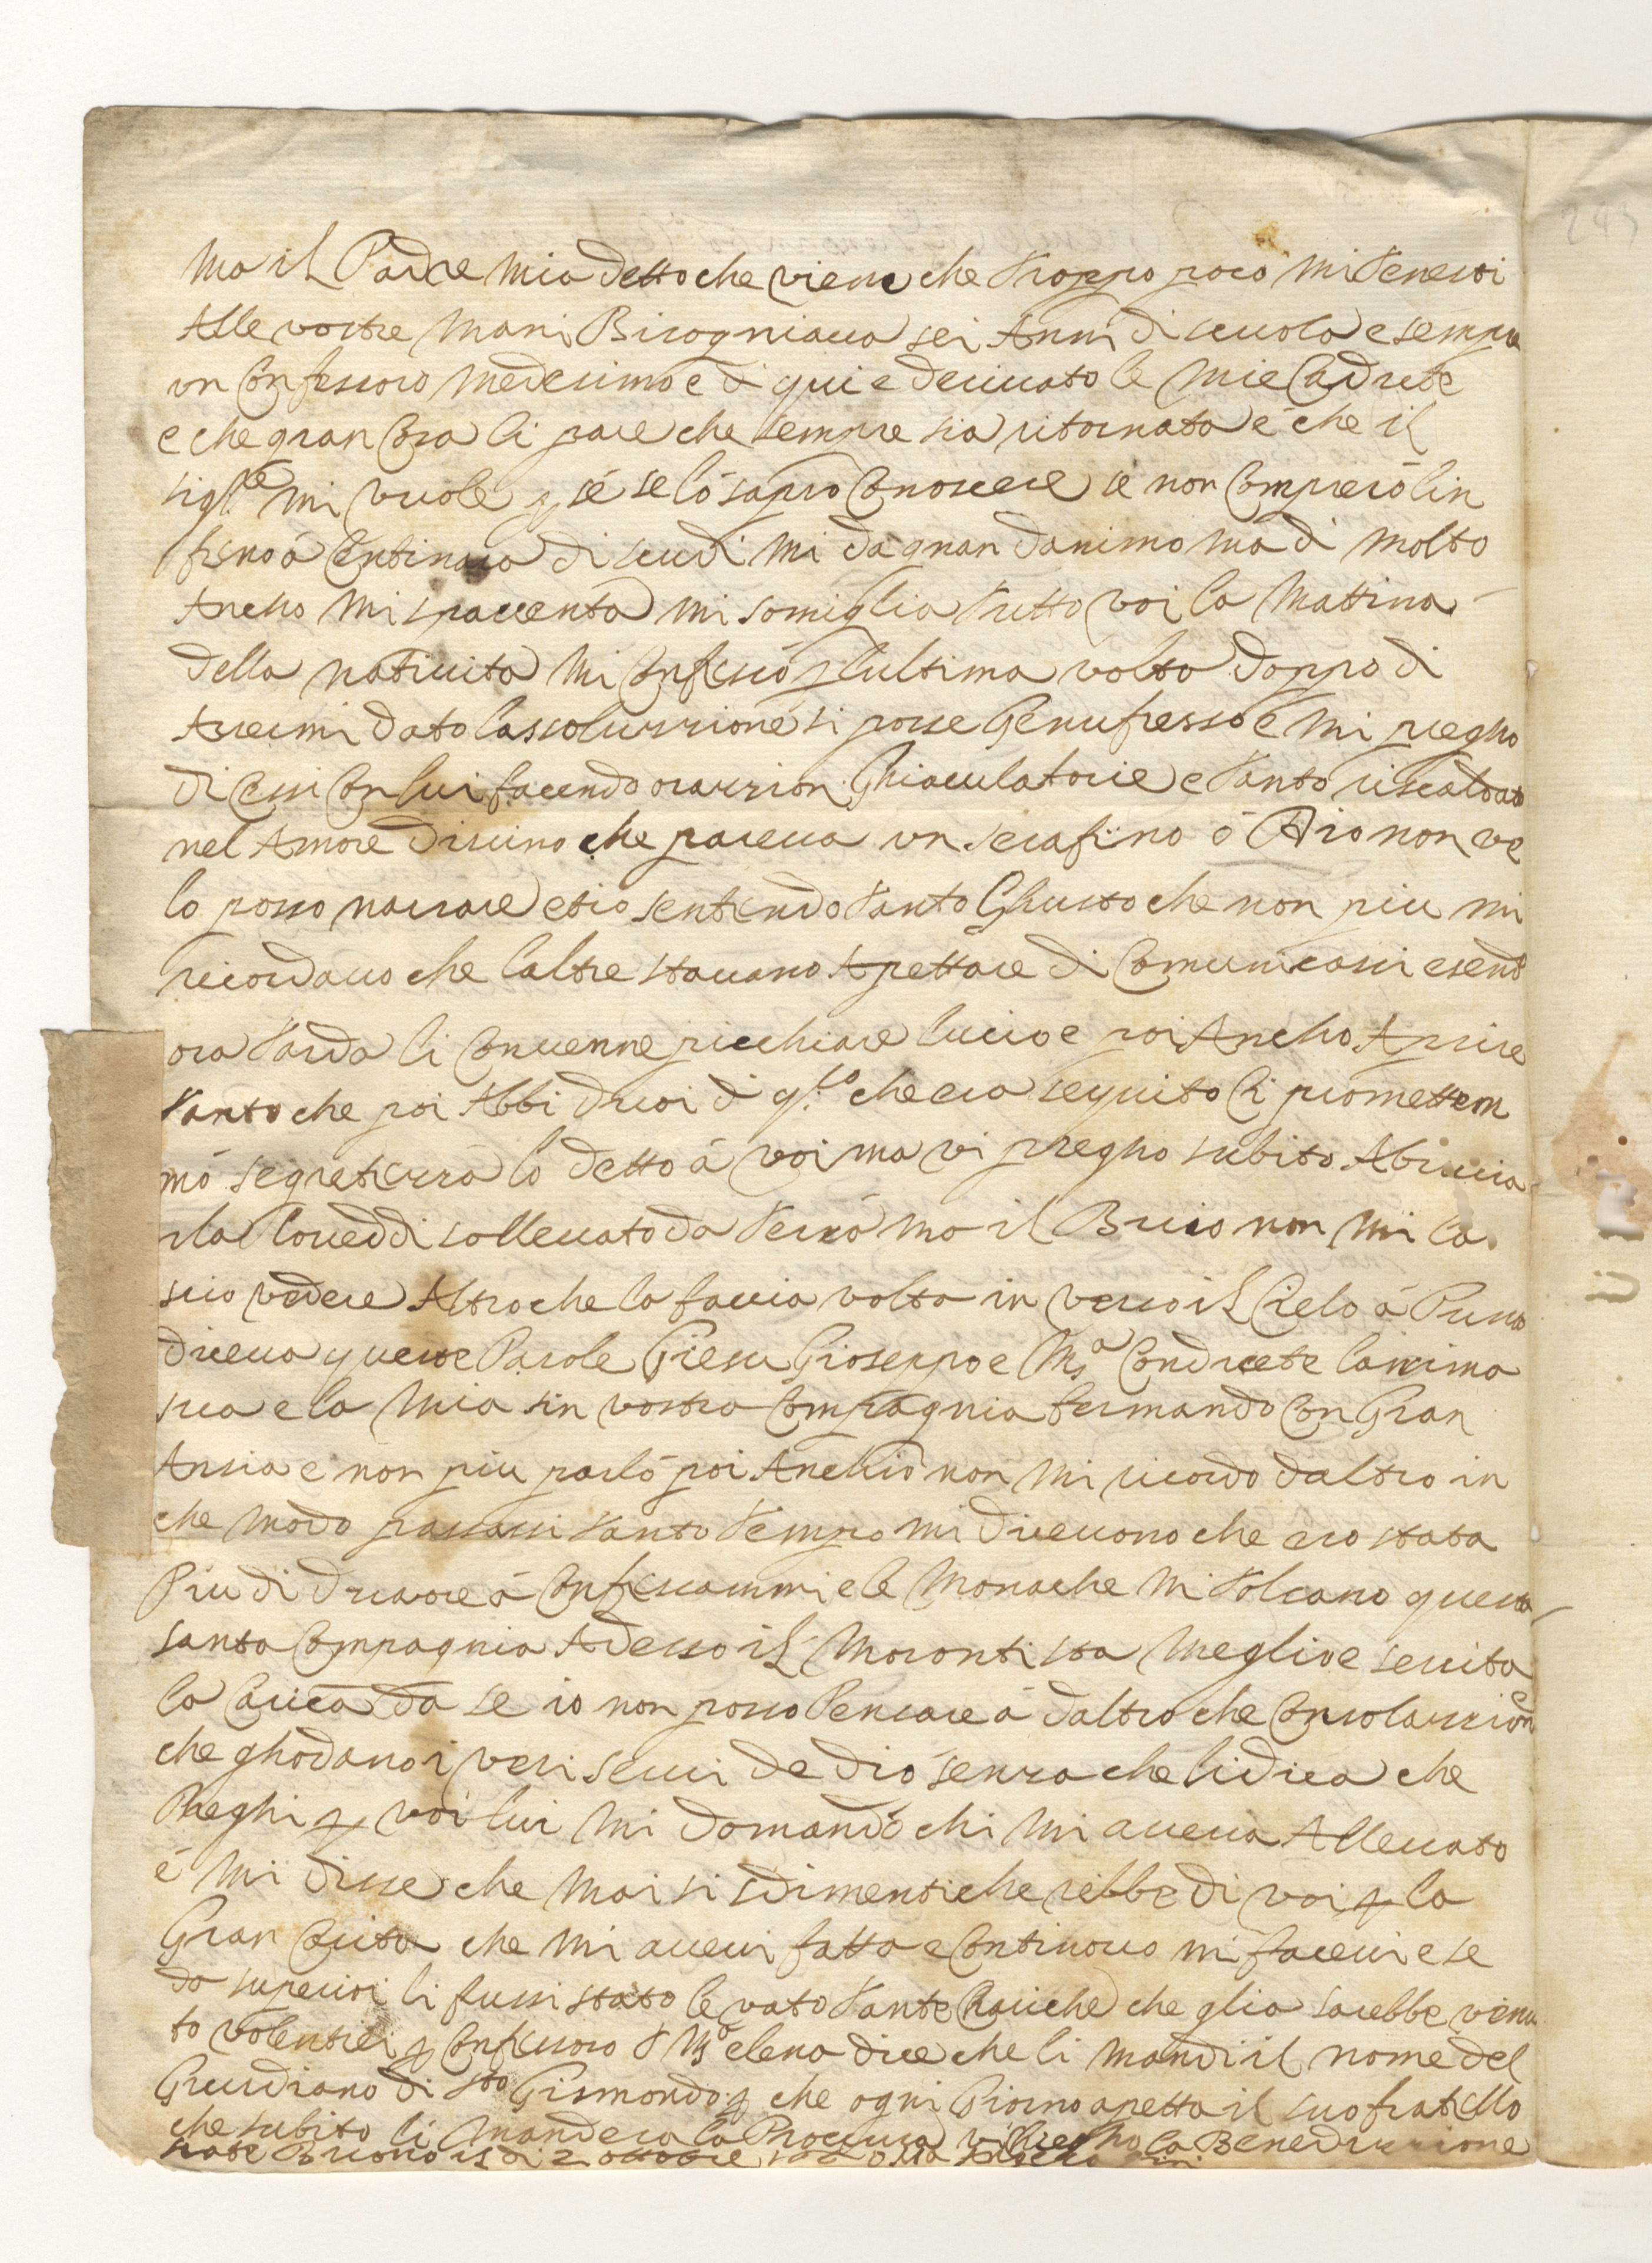 ma il Padre mia detto che viene che troppo poco mi tenessi
Alle vostre mani Bisogniaua sei Anni di scuola e sempre
vn Confessoro medesimo e di qui e deriuato le mie Cadute
e che gran Cosa li pare che sempre sia ritornata e che il
sig.re mi vuole p sé se ló sapró Conoscere se non Compieró lin
fino á Centinaia di scudi mi dá gran danimo má di molto
Ancho mi spauenta mi somiglia tutto voi la Mattina
della natiuita mi Confesió p lultima volta doppo di
Auermi dato lassoluzzione si posse Genufresso e mi pregho
di Cosi Con lui facendo orazzion Ghiaculatorie e tanto riscaldato
nel Amore diuino che pareua vn serafino ó Dio non ve
lo posso narrare et io sentendo tanto Ghusto che non piu mi
ricordauo che laltre stauano Aspettare di Comunicarsi esend
ora tarda li Conuenne picchiare lucio e poi Ancho Aprire
tanto che poi Abbi druoi di q.to che era seguito li promettem
mó segretezza ló detto á voi ma vi pregho subito Abrucia
rla loueddi solleuato da terra ma il Buio non mi la
scio vedere Altro che la faccia volta in verso il Cielo á Puno
diceua queste Parole Giesu Gioseppo e M.a Condrcete lanima
sua e la mia in vostra Compagnia fermando Con Gran
Ansia e non piu parló poi Anchio non mi ricordo daltro in
che modo passassi tanto tempo mi diceuono che ero stata
Piu di druore á Confessammi e le Monache mi tolsano questa
santa Compagnia Adesso il Moronti sta meglio e seruita
la Carica da se io non posso Pensare á daltro che Consolazzion
che ghodano i veri serui de dio senza che li dica che
Preghi p voi lui mi domandó chi mi aueua Alleuato
é mi disse che mai si sdimentiche rebbe di voi p la
Gran Carita che mi aueui fatta e Continouo mi faceui e se
da superiori li fussi stato le vato tante Cariche che glia sarebbe venu
to volentieri p Confessoro S M.a elena dice che li mandi il nome del
Gruardiano di S.to Gismondo p che ogni Giorno apetta il suo fratello
che subito li mandera la Proccura vi Chiegho la Benedizzione
state Buono is di 2 ottobre